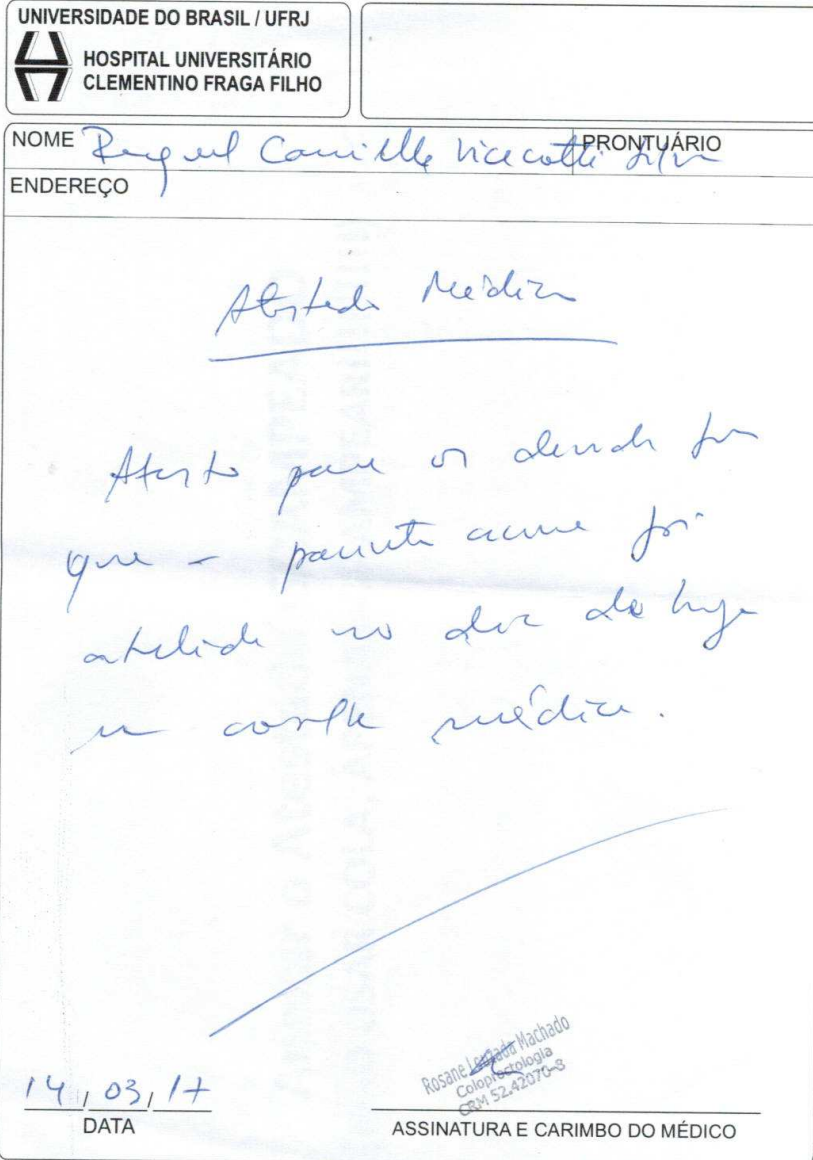 UNIVERSIDADE DO BRASIL / UFRJ
HOSPITAL UNIVERSITÁRIO
CLEMENTINO FRAGA FILHO
NOME Raquel Camille Silva
PRONTUÁRIO
ENDEREÇO
Atestado Médico
Atesto para os devidos fins
que a paciente acima foi
atendida no dia de hoje
em consulta médica.
14/03/17
DATA
Rosane Machado
Coloproctologia
CRM 52.42070-8
ASSINATURA E CARIMBO DO MÉDICO